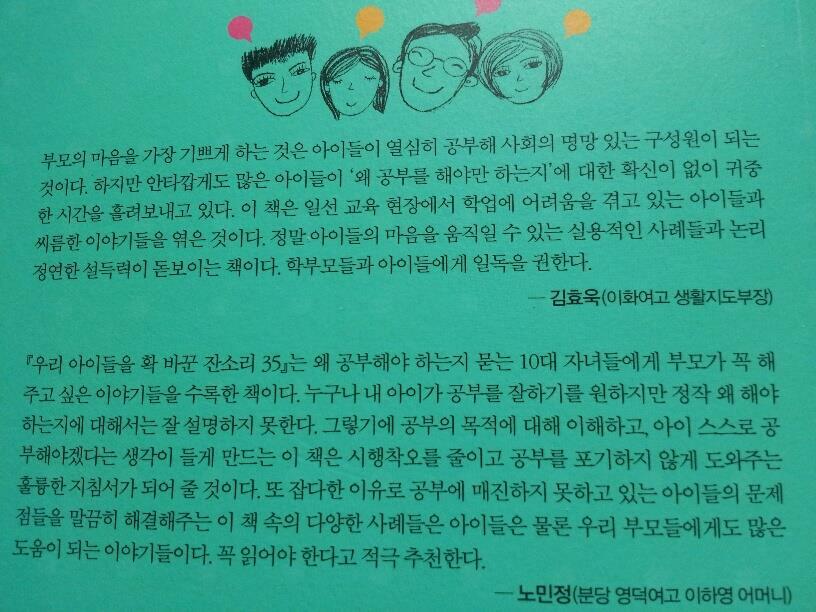 부모의 마음을 가장 기쁘게 하는 것은 아이들이 열심히 공부해 사회의 명망 있는 구성원이 되는
것이다. 하지만 안타깝게도 많은 아이들이 ‘왜 공부를 해야만 하는지’에 대한 확신이 없이 귀중
한 시간을 흘려보내고 있다. 이 책은 일선 교육 현장에서 학업에 어려움을 겪고 있는 아이들과
씨름한 이야기들을 엮은 것이다. 정말 아이들의 마음을 움직일 수 있는 실용적인 사례들과 논리
정연한 설득력이 돋보이는 책이다. 학부모들과 아이들에게 일독을 권한다.
― 김효욱(이화여고 생활지도부장)
『우리 아이들을 확 바꾼 잔소리 35』는 왜 공부해야 하는지 묻는 10대 자녀들에게 부모가 꼭 해
주고 싶은 이야기들을 수록한 책이다. 누구나 내 아이가 공부를 잘하기를 원하지만 정작 왜 해야
하는지에 대해서는 잘 설명하지 못한다. 그렇기에 공부의 목적에 대해 이해하고, 아이 스스로 공
부해야겠다는 생각이 들게 만드는 이 책은 시행착오를 줄이고 공부를 포기하지 않게 도와주는
훌륭한 지침서가 되어 줄 것이다. 또 잡다한 이유로 공부에 매진하지 못하고 있는 아이들의 문제
점들을 말끔히 해결해주는 이 책 속의 다양한 사례들은 아이들은 물론 우리 부모들에게도 많은
도움이 되는 이야기들이다. 꼭 읽어야 한다고 적극 추천한다.
― 노민정(분당 영덕여고 이하영 어머니)